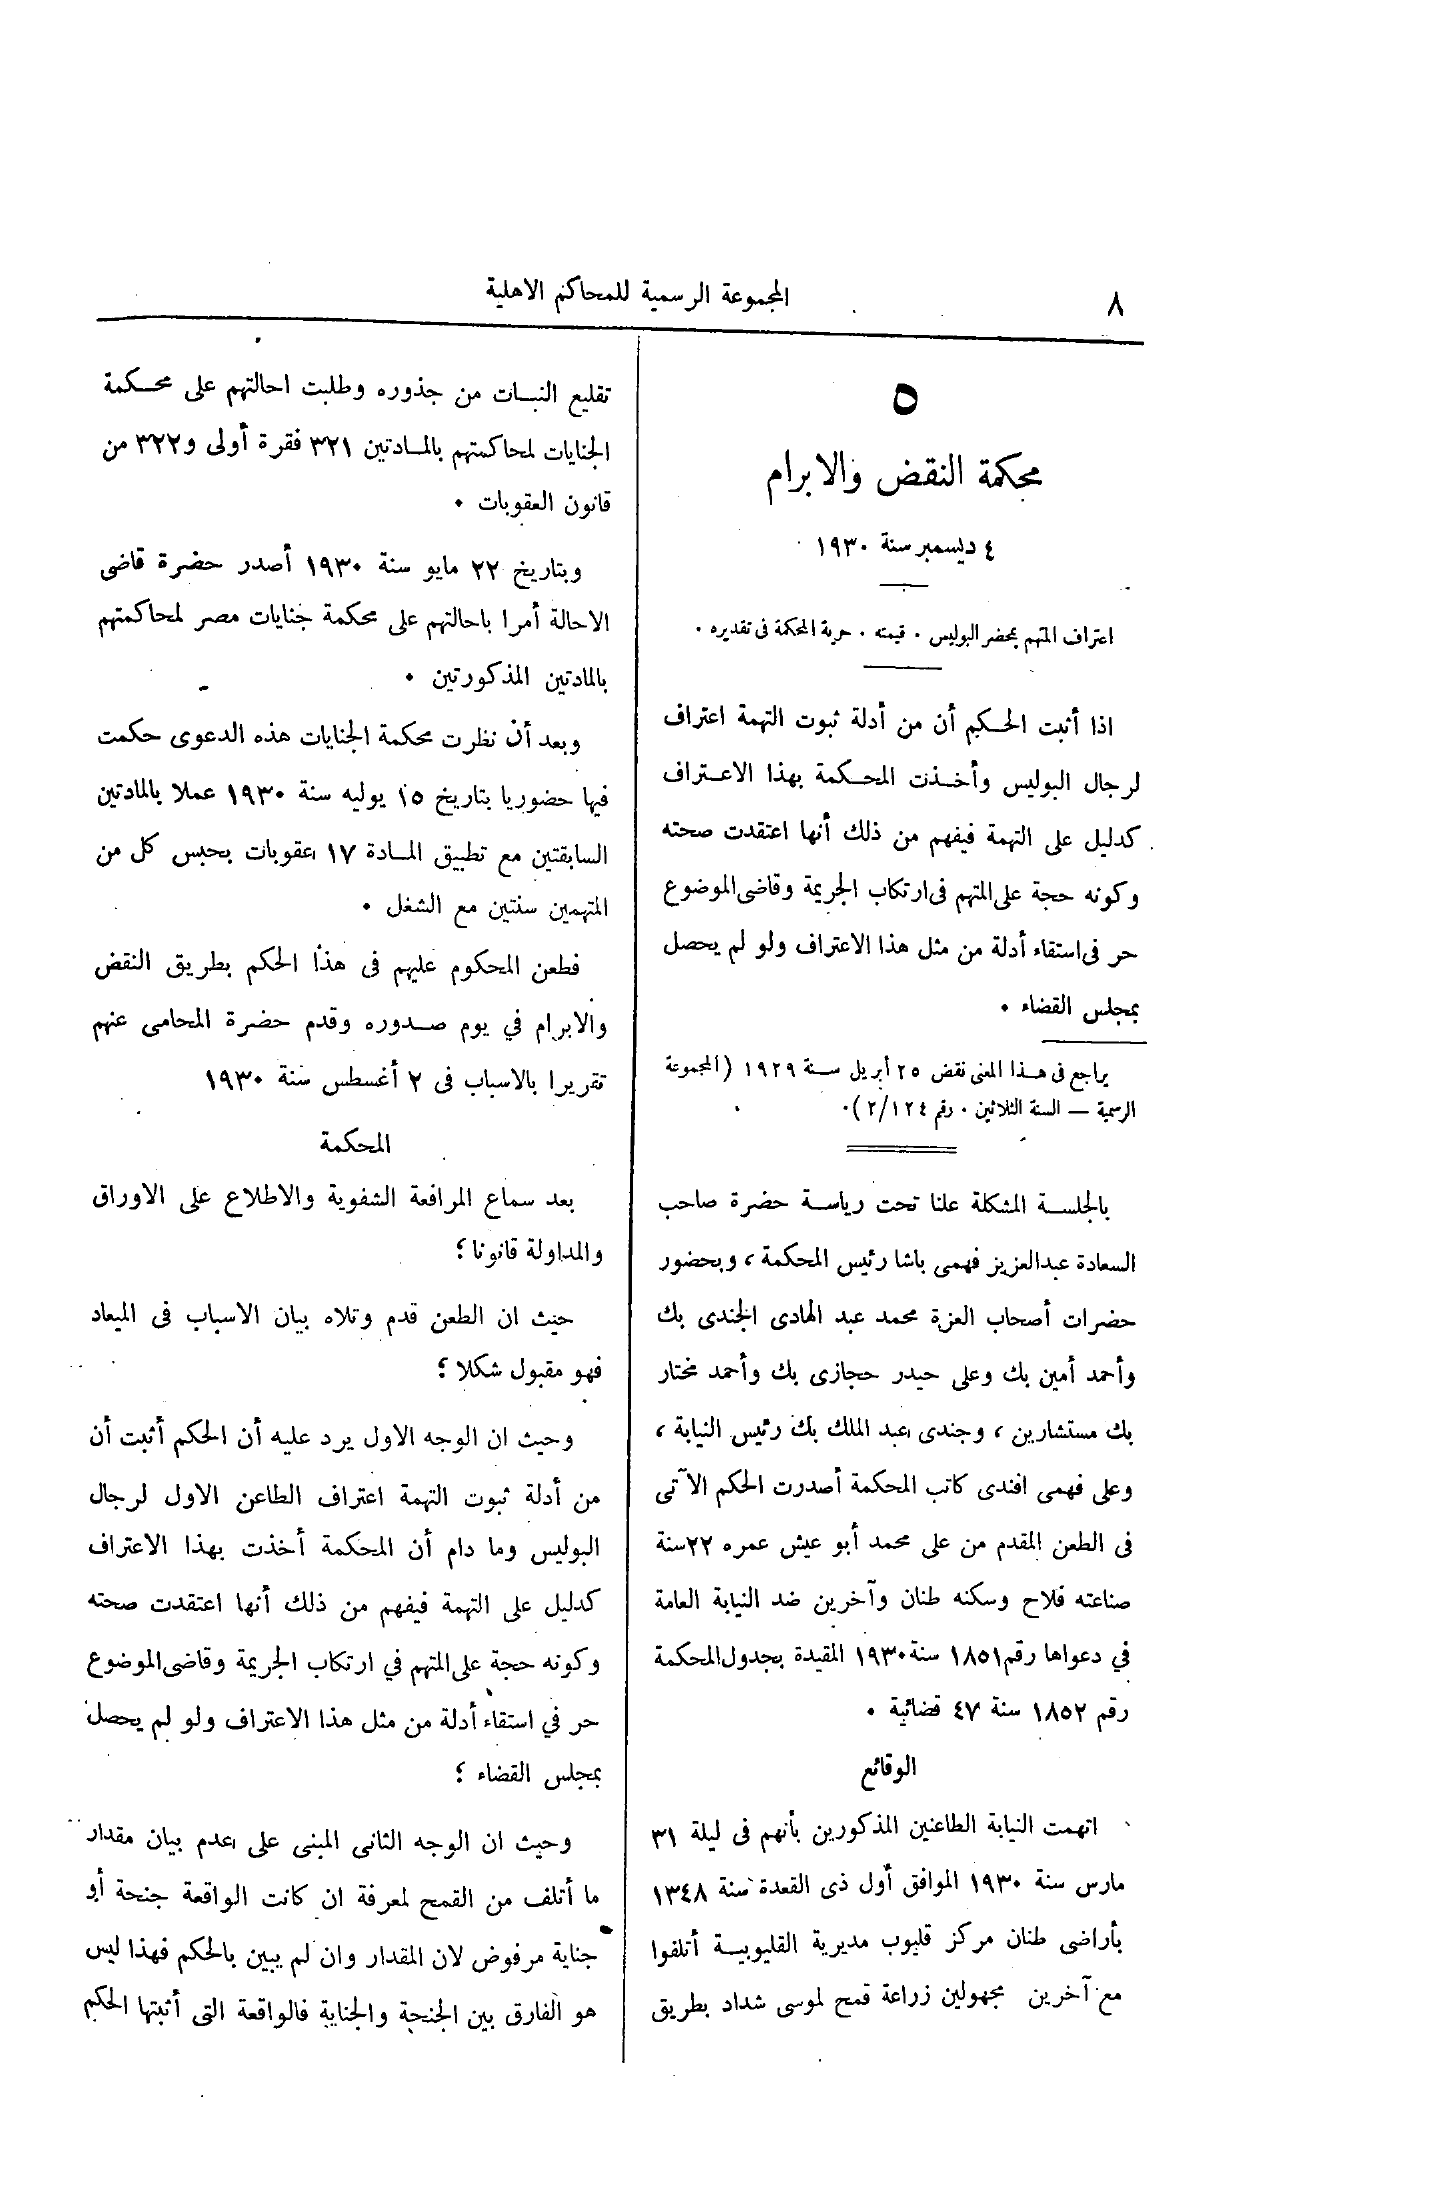 ٨
المجموعة الرسمية للمحاكم الاهلية
٥
محكمة النقض والابرام
٤ ديسمبر سنة ١٩٣٠
اعتراف المتهم بمحضر البوليس . قيمته . حرية المحكمة فى تقديره .
اذا أثبت الحكم أن من أدلة ثبوت التهمة اعتراف
لرجال البوليس وأخذت المحكمة بهذا الاعتراف
كدليل على التهمة فيفهم من ذلك أنها اعتقدت صحته
وكونه حجة على المتهم فى ارتكاب الجريمة وقاضى الموضوع
حر فى استقاء أدلة من مثل هذا الاعتراف ولو لم يحصل
بمجلس القضاء .
يراجع فى هذا المعنى نقض ٢٥ أبريل سنة ١٩٢٩ (المجموعة
الرسمية — السنة الثلاثين . رقم ٢/١٢٤).
بالجلسة المشكلة علنا تحت رياسة حضرة صاحب
السعادة عبدالعزيز فهمى باشا رئيس المحكمة ، وبحضور
حضرات أصحاب العزة محمد عبد الهادى الجندى بك
وأحمد أمين بك وعلى حيدر حجازى بك وأحمد مختار
بك مستشارين ، وجندى عبد الملك بك رئيس النيابة ،
وعلى فهمى افندى كاتب المحكمة أصدرت الحكم الآتى
فى الطعن المقدم من على محمد أبو عيش عمره ٢٢سنة
صناعته فلاح وسكنه طنان وآخرين ضد النيابة العامة
في دعواها رقم ١٨٥١ سنة ١٩٣٠ المقيدة بجدول المحكمة
رقم ١٨٥٢ سنة ٤٧ قضائية .
الوقائع
اتهمت النيابة الطاعنين المذكورين بأنهم فى ليلة ٣١
مارس سنة ١٩٣٠ الموافق أول ذى القعدة سنة ١٣٤٨
بأراضى طنان مركز قليوب مديرية القليوبية أتلفوا
مع آخرين مجهولين زراعة قمح لموسى شداد بطريق
تقليع النبات من جذوره وطلبت احالتهم على محكمة
الجنايات لمحاكمتهم بالمادتين ٣٢١ فقرة أولى و٣٢٢ من
قانون العقوبات .
وبتاريخ ٢٢ مايو سنة ١٩٣٠ أصدر حضرة قاضى
الاحالة أمرا باحالتهم على محكمة جنايات مصر لمحاكمتهم
بالمادتين المذكورتين .
وبعد أن نظرت محكمة الجنايات هذه الدعوى حكمت
فيها حضوريا بتاريخ ١٥ يوليه سنة ١٩٣٠ عملا بالمادتين
السابقتين مع تطبيق المادة ١٧ عقوبات بحبس كل من
المتهمين سنتين مع الشغل .
فطعن المحكوم عليهم فى هذا الحكم بطريق النقض
والابرام في يوم صدوره وقدم حضرة المحامى عنهم
تقريرا بالاسباب فى ٢ أغسطس سنة ١٩٣٠
المحكمة
بعد سماع المرافعة الشفوية والاطلاع على الاوراق
والمداولة قانونا ؛
حيث ان الطعن قدم وتلاه بيان الاسباب فى الميعاد
فهو مقبول شكلا ؛
وحيث ان الوجه الاول يرد عليه أن الحكم أثبت أن
من أدلة ثبوت التهمة اعتراف الطاعن الاول لرجال
البوليس وما دام أن المحكمة أخذت بهذا الاعتراف
كدليل على التهمة فيفهم من ذلك أنها اعتقدت صحته
وكونه حجة على المتهم في ارتكاب الجريمة وقاضى الموضوع
حر في استقاء أدلة من مثل هذا الاعتراف ولو لم يحصل
بمجلس القضاء ؛
وحيث ان الوجه الثانى المبنى على عدم بيان مقدار
ما أتلف من القمح لمعرفة ان كانت الواقعة جنحة أو
جناية مرفوض لان المقدار وان لم يبين بالحكم فهذا ليس
هو الفارق بين الجنحة والجناية فالواقعة التى أثبتها الحكم